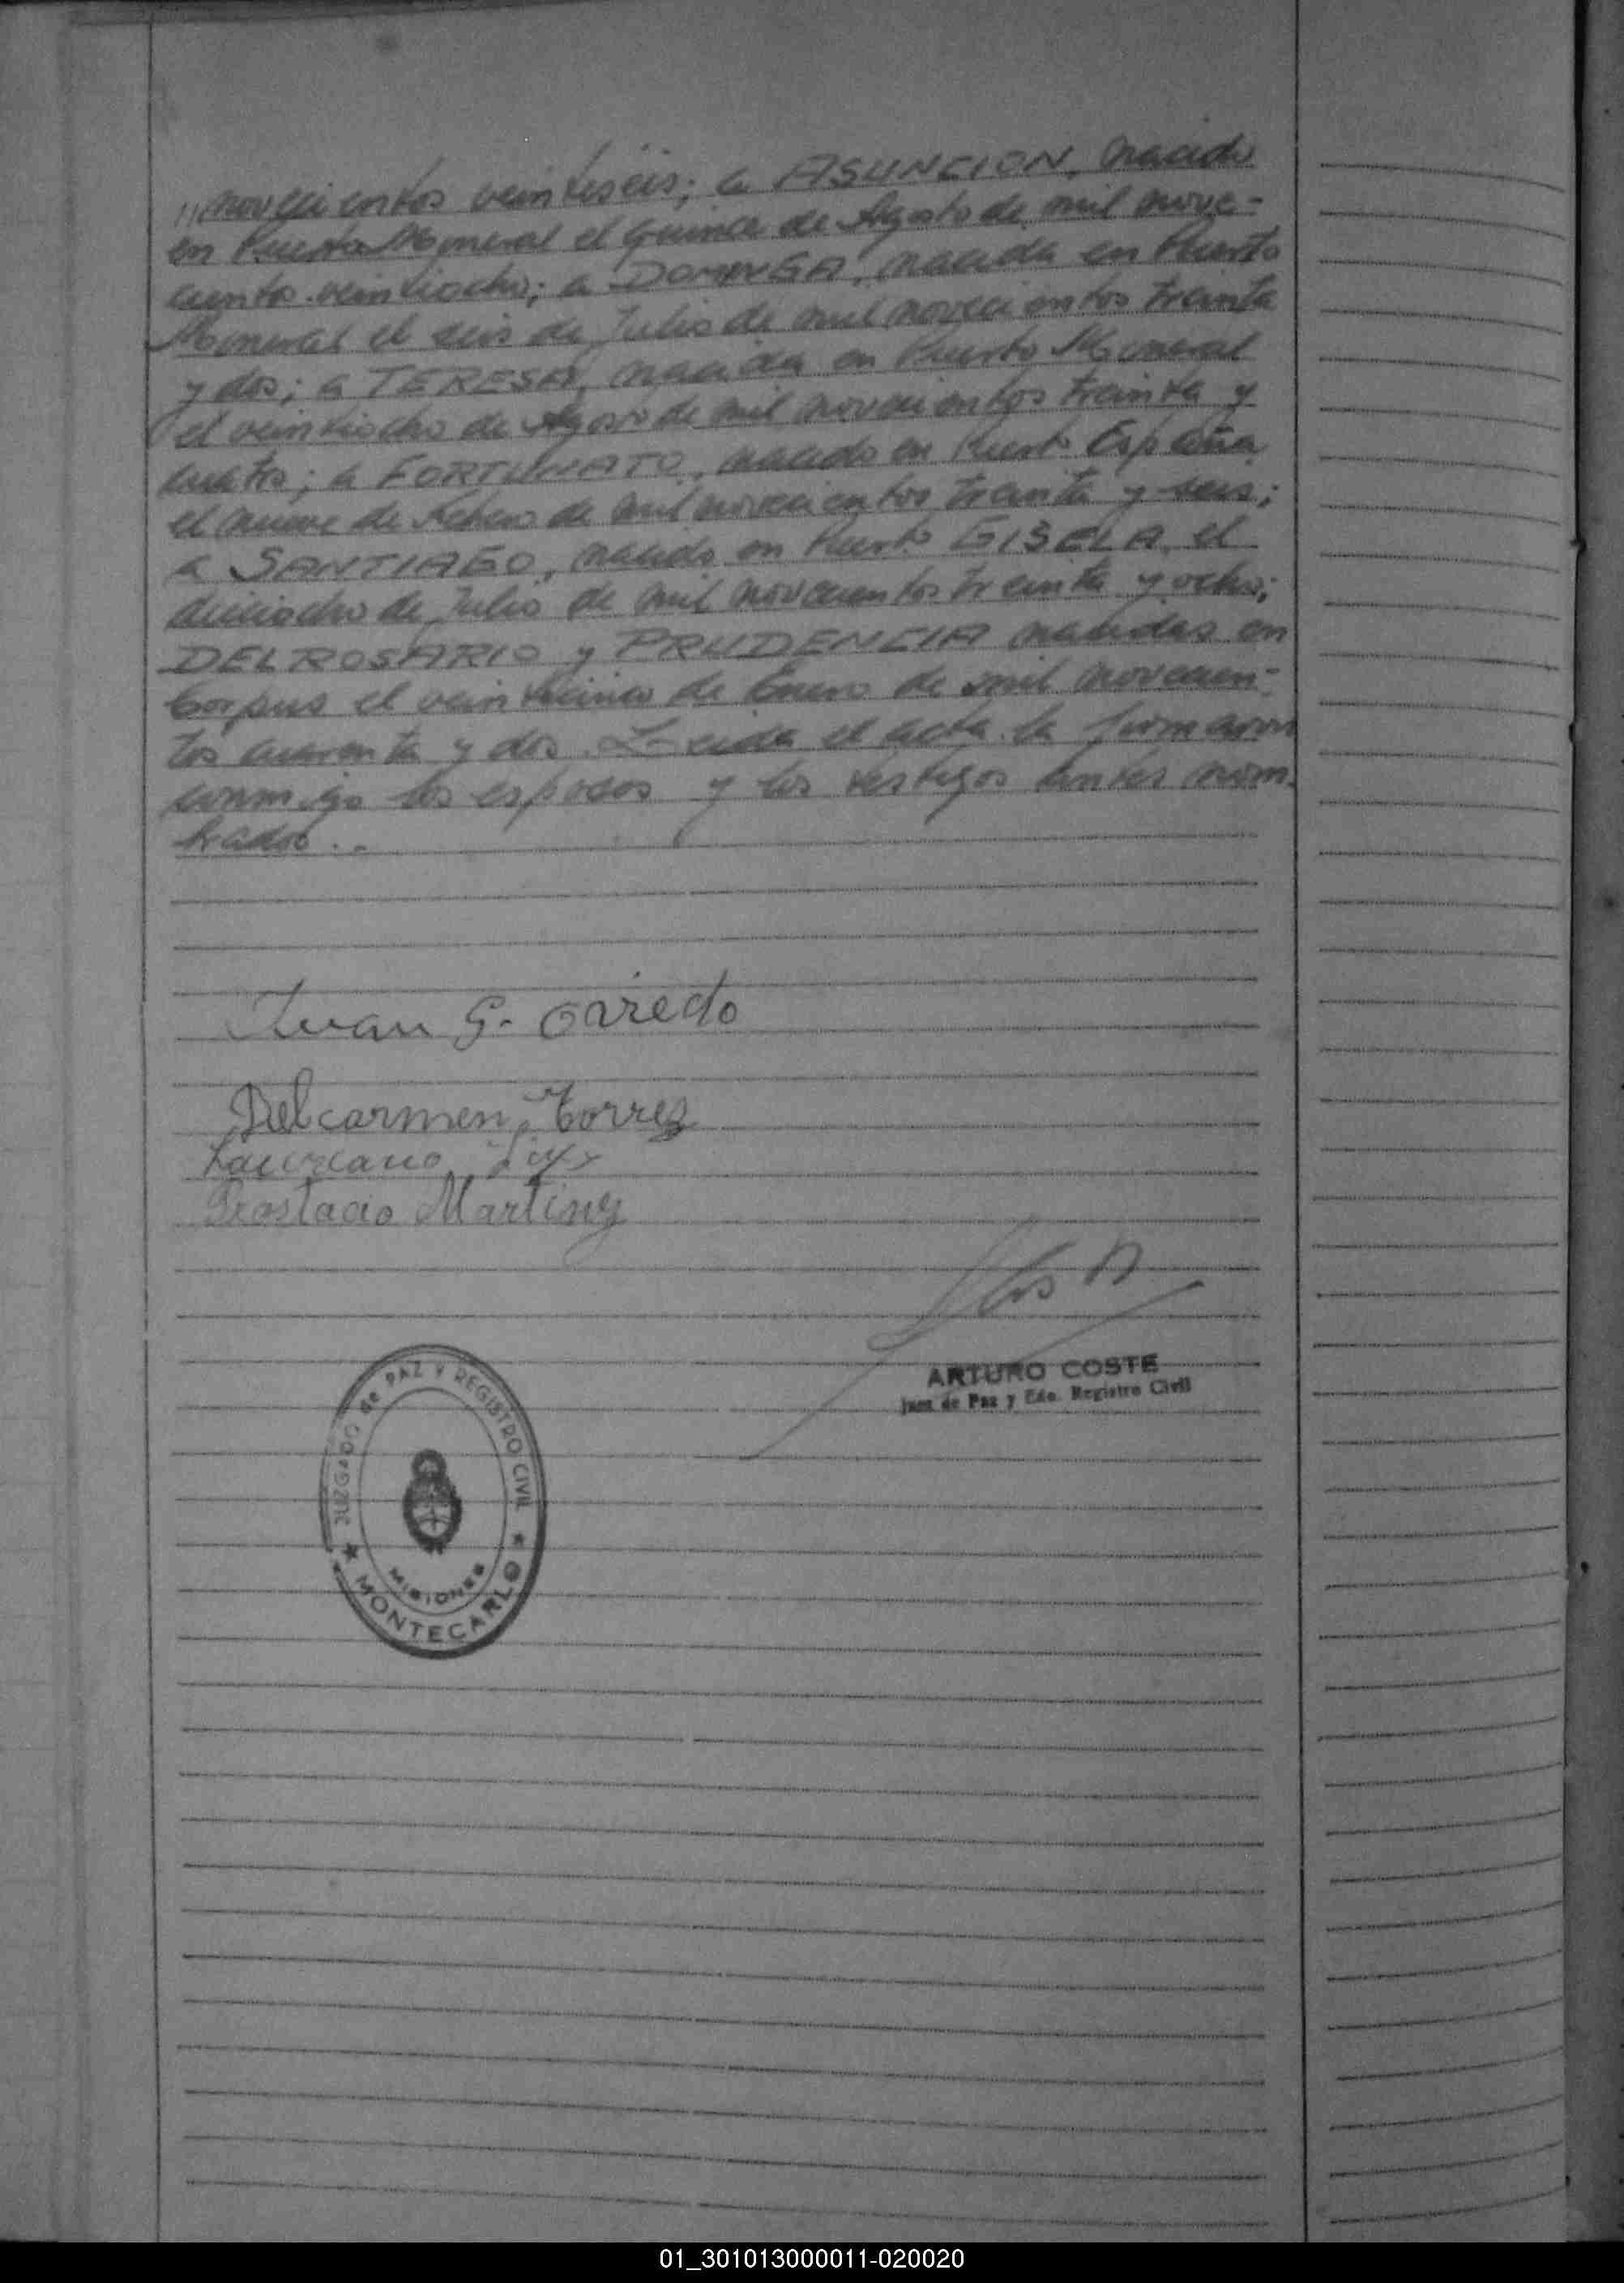 //novecientos veintiseis; a ASUNCION, nacido
en Puerto Mineral el quince de Agosto de mil nove-
cientos veintiocho; a DOMINGA, nacida en Puerto
Mineral el seis de Julio de mil novecientos treinta
y dos; a TERESA, nacida en Puerto Mineral
el veintiocho de Agosto de mil novecientos treinta y
cuatro; a FORTUNATO, nacido en Puerto España
el nueve de Febrero de mil novecientos treinta y seis;
a SANTIAGO, nacido en Puerto GISELA, el
dieciocho de Julio de mil novecientos treinta y ocho;
DELROSARIO y PRUDENCIA nacidas en
Corpus el veinticinco de Enero de mil novecien-
tos cuarenta y dos. Leida el acta la firmaron
conmigo los esposos y los testigos antes nom-
brados..-
Juan G. Oviedo
Delcarmen Torrez
Laureano
Prostacio Martinez
ARTURO COSTE
Juez de Paz y Edo. Registro Civil
JUZGADO de PAZ Y REGISTRO CIVIL
MISIONES
★ MONTECARLO ★
01_301013000011-020020